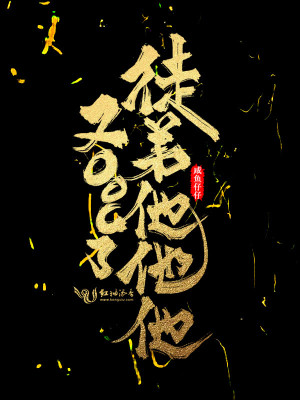 徒弟他他他
又OOC了
咸鱼仔仔
红袖添香
www.hongxiu.com